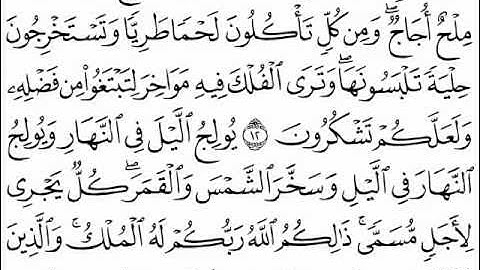 مِلۡحٌ أُجَاجٞۖ وَمِن كُلّٖ تَأۡكُلُونَ لَحۡمٗا طَرِيّٗا وَتَسۡتَخۡرِجُونَ
حِلۡيَةٗ تَلۡبَسُونَهَاۖ وَتَرَى ٱلۡفُلۡكَ فِيهِ مَوَاخِرَ لِتَبۡتَغُواْ مِن فَضۡلِهِۦ
وَلَعَلَّكُمۡ تَشۡكُرُونَ ١٢ يُولِجُ ٱلَّيۡلَ فِي ٱلنَّهَارِ وَيُولِجُ
ٱلنَّهَارَ فِي ٱلَّيۡلِ وَسَخَّرَ ٱلشَّمۡسَ وَٱلۡقَمَرَۖ كُلّٞ يَجۡرِي
لِأَجَلٖ مُّسَمّٗىۚ ذَٰلِكُمُ ٱللَّهُ رَبُّكُمۡ لَهُ ٱلۡمُلۡكُۚ وَٱلَّذِينَ